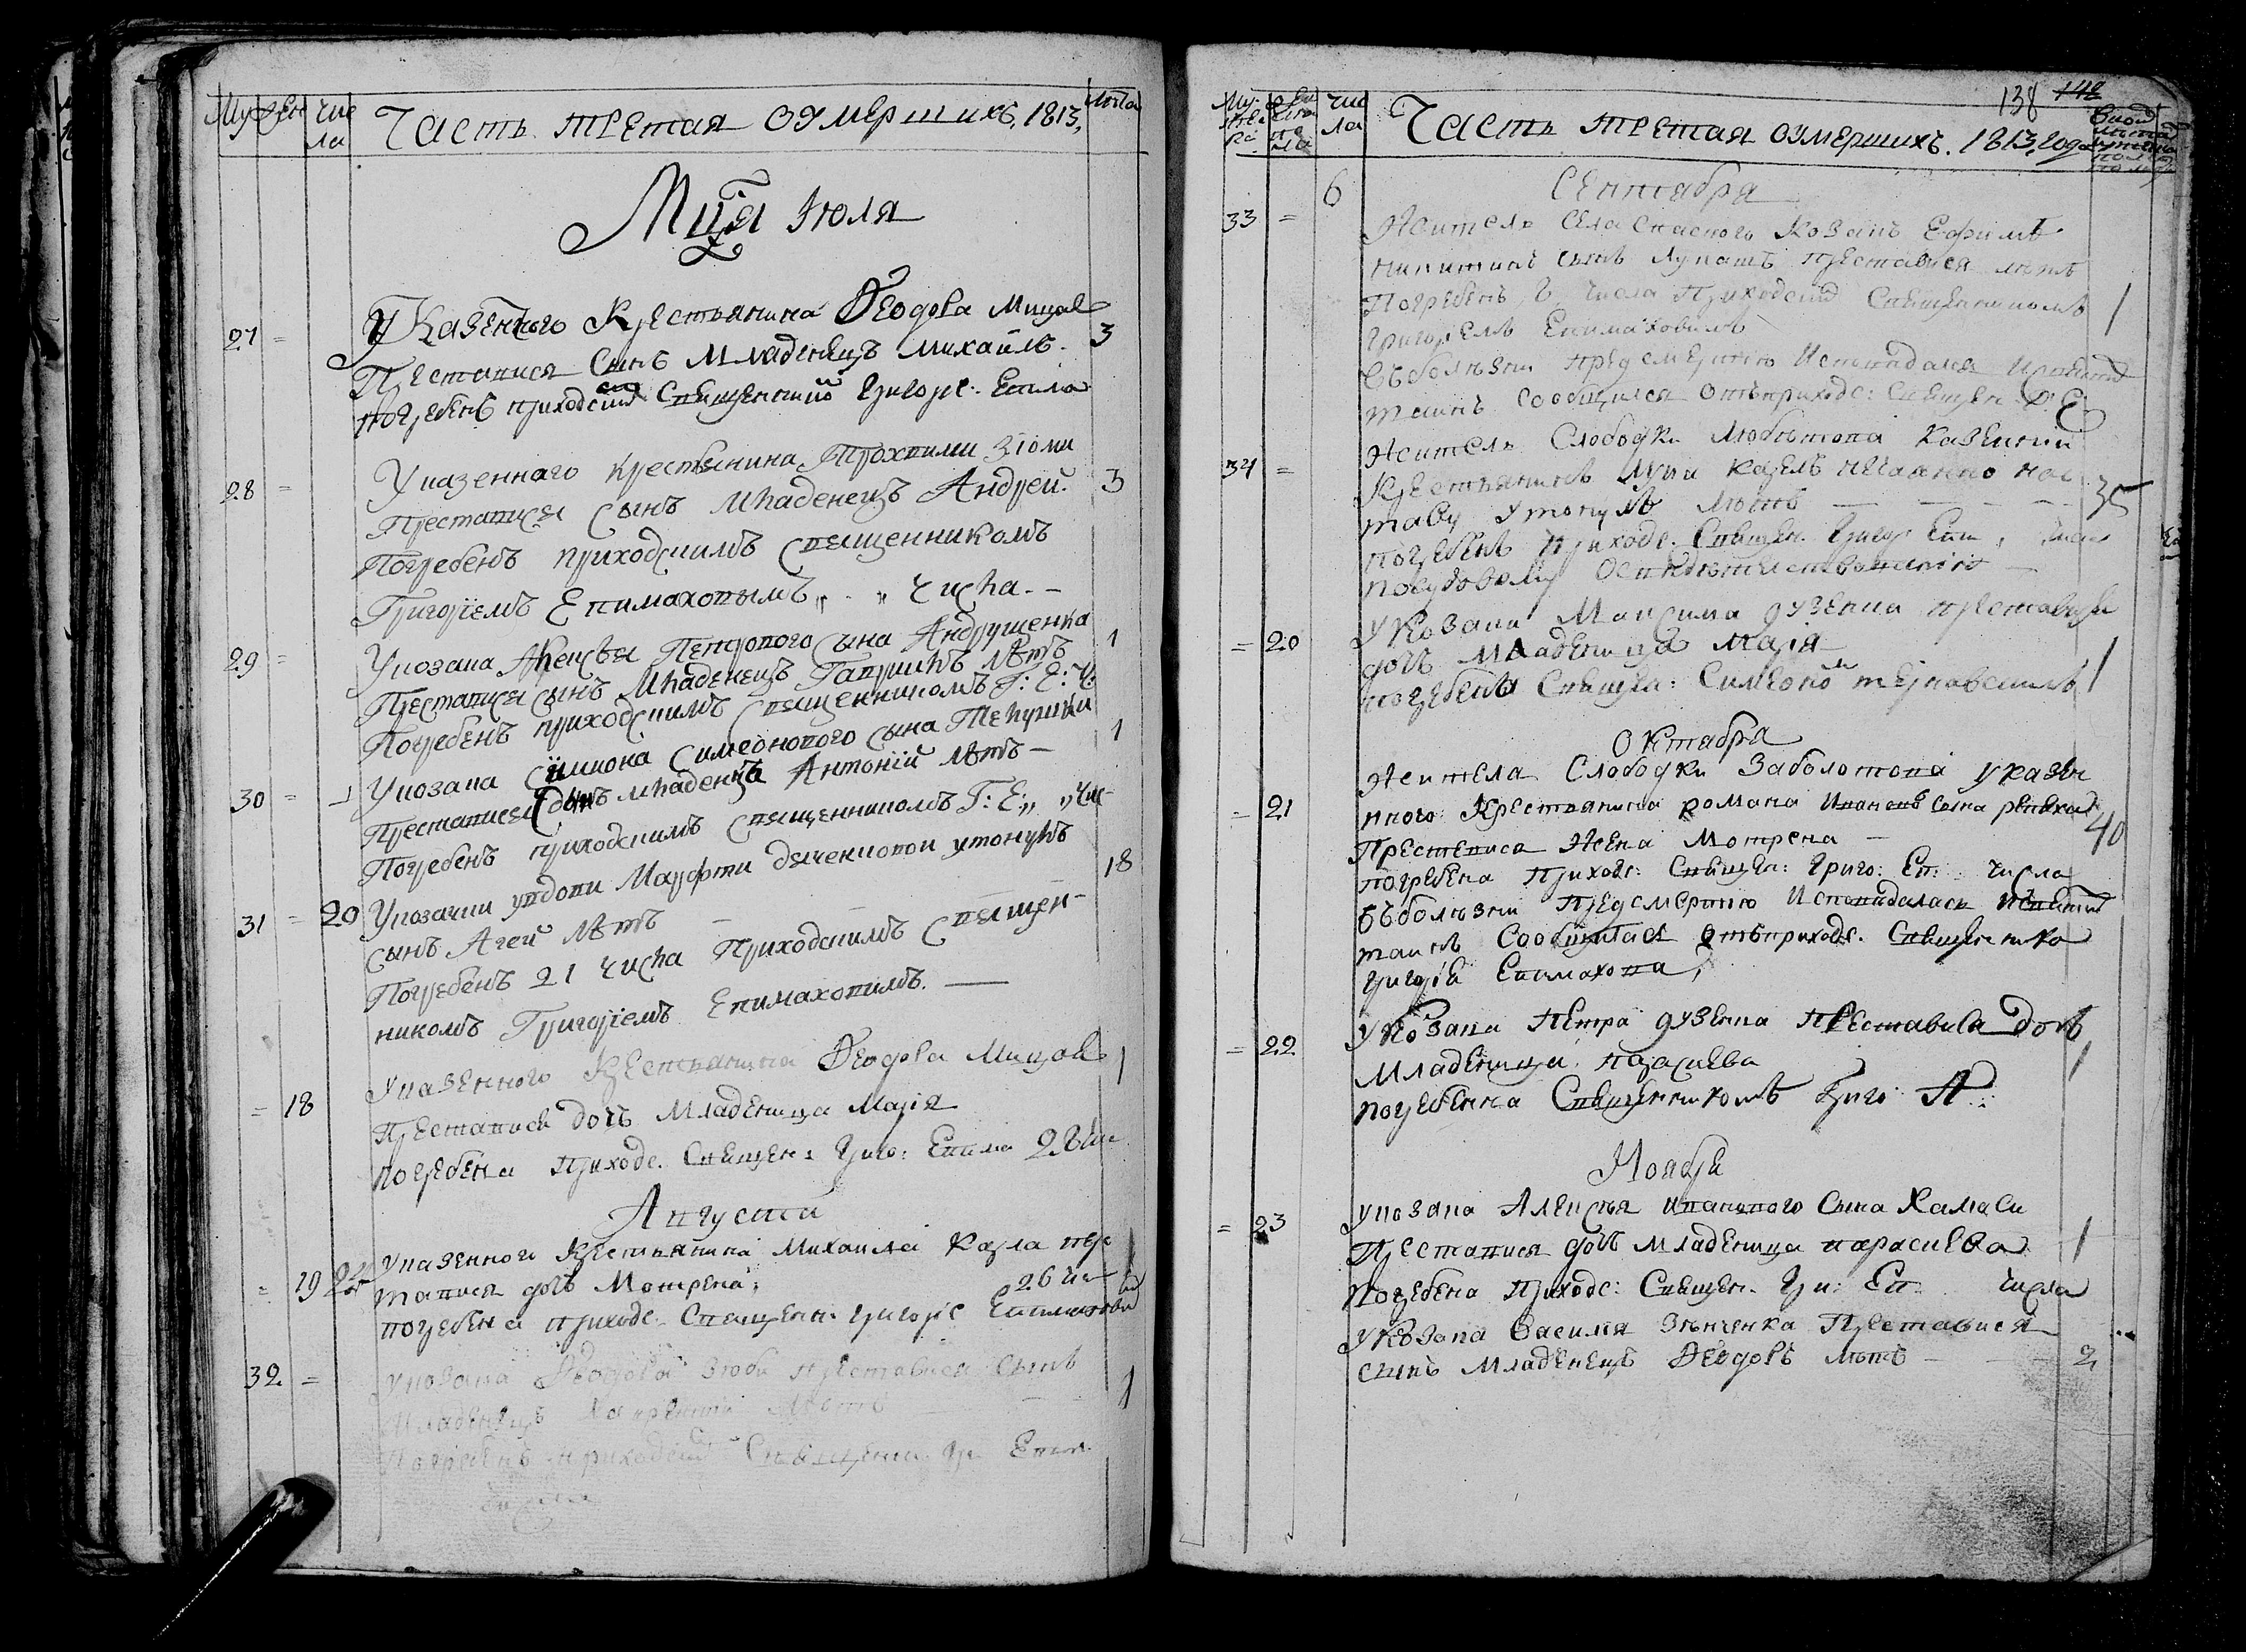 Му Жен Чис ла
Часть третая оумершихъ, 1813,
лѣта
Мца Іюля
27 = У Казенного Крестьянина Ѳеодора 3
Преставися Сынъ Младенецъ Михаилъ.
погребенъ приходским Священний Григоріе: Епима
28 = У казенного крестьянина Трохими Зюми
Преставися Сынъ младенецъ Андрей. 3
Погребенъ приходскимъ священникомъ
Григоріемъ Епимаховымъ „ . „ числа. —
29 = У козака Алексѣя Петрового сына Андрущенка 1
Преставися сынъ младенецъ Гавриилъ лѣтъ
Погребенъ приходскимъ священникомъ Г: Е: Ч:
30 = У козака Симиона Симеонового сына 1
Преставися сынъ младенецъ Антоній лѣтъ —
Погребенъ приходскимъ священникомъ Г: Е: „ „ чис
31 = 20 У козачки удови Марфти утонулъ 18
сынъ Агей лѣтъ — — —
Погребенъ 21 числа Приходскимъ священ-
никомъ Григоріемъ Епимаховимъ. —
= 18 У казенного Крестьянина Ѳеодора 1
Преставися дочъ Младеница Марія
погребена приходс. Священ: Григо: Епима 28 чис
Августа
= 19 У казенного Крестьянина Михаила Козла прес 1
тавися дочъ Мотрена: 26 чис
погребена приходс. Священн. Григоріе Епимахови
32 = У козака Ѳеодора Зюби преставися Сынъ 1
Младенецъ лѣтъ
Погребенъ приходски Священни Гр Епим
числа
138 148
Му же ска
Чис ла
Часть третая оумершихъ. 1813, года
Сентабра
33 = 6 Житель села Спаского Козакъ Ефимъ
Никитинъ сынъ Лукашъ преставися лѣтъ
Погребенъ 8 числа Приходски Священникомъ 1
Григоріемъ Епимаховимъ
Въ болѣзни предсмертною Исповѣдался И
таинъ сообщился отъ приходс: Священ Г: Е
34 = Житель Слободки Казенний
Крестьянинъ Козелъ нечаянно
утонулъ лѣтъ — — — 35
погребенъ приходс. Священ. Григор Епи, числа
= 20 У Козака Максима дузенка преставися
дочъ младеница Марія
погребена Священ: Симеоно 1
Октабра
Жителя Слободки Заболотова у казен
= 21 ного Крестьянина романа Иванова сына 40
Преставися Жена Мотрена —
погребена приходс: Священ: Григо: Еп: числа
Въ болѣзни предсмертною Исповидалась И
таинъ Сообщилася отъ приходс. Священника
Григорія Епимахова,
= 22 У Козака Петра дузенка Преставися Дочъ
Младеница параскева 1
погребенна Священникомъ Григо
Ноября
= 23 У козака Алексѣя Иванового Сына
Преставися дочъ младеница параскева 1
Погребена приходс: Священ. Гри: Еп: числа
У Козака Василия Зѣнченка Преставися
сынъ младенецъ Ѳеодоръ лѣтъ — — 2